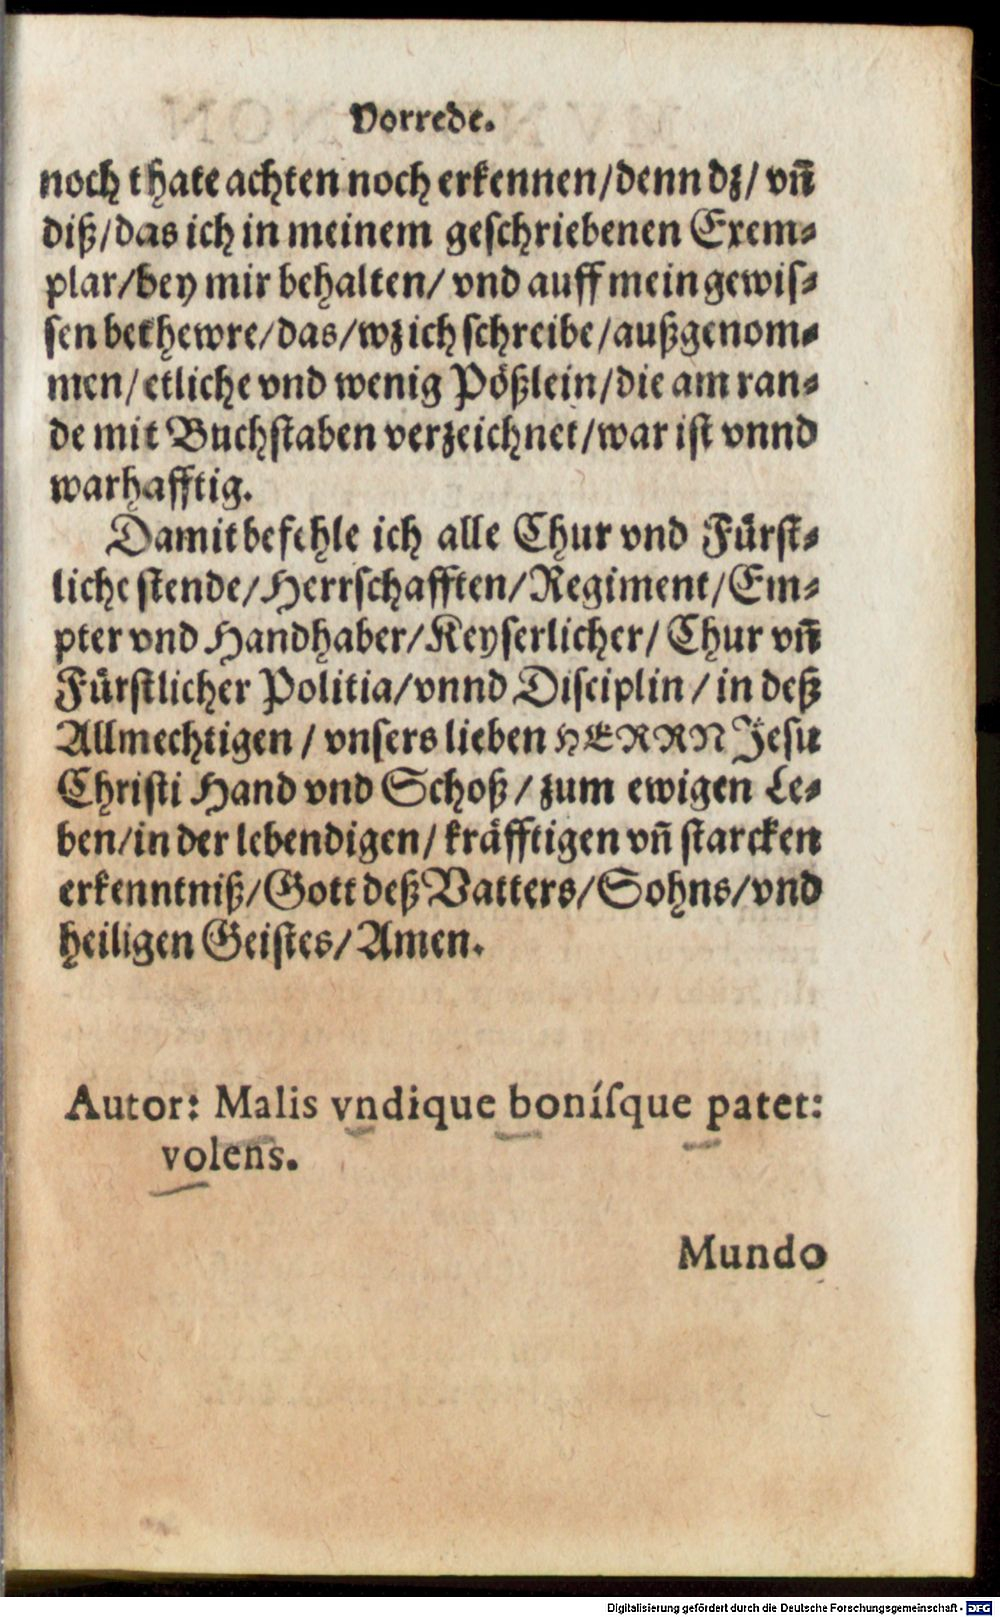 Vorrede.
noch thate achten noch erkennen/denn dz/ vn̄
diß/das ich in meinem geschriebenen Exem⸗
plar/bey mir behalten/ vnd auff mein gewis⸗
sen bethewre/das/wz ich schreibe/außgenom⸗
men/etliche vnd wenig Pößlein/die am ran⸗
de mit Buchstaben verzeichnet/war ist vnnd
warhafftig.
Damit befehle ich alle Chur vnd Fürst⸗
liche stende/Herrschafften/Regiment/Em⸗
pter vnd Handhaber/Keyserlicher/ Chur vn̄
Fürstlicher Politia/vnnd Disciplin/in deß
Allmechtigen/vnsers lieben HERRN Jesu
Christi Hand vnd Schoß/zum ewigen Le⸗
ben/in der lebendigen/kräfftigen vn̄ starcken
erkenntniß/Gott deß Vatters/Sohns/vnd
heiligen Geistes/Amen.
Autor: Malis vndique boníſque patet:
volens.
Mundo
Digitalisierung gefördert durch die Deutsche Forschungsgemeinschaft - DFG